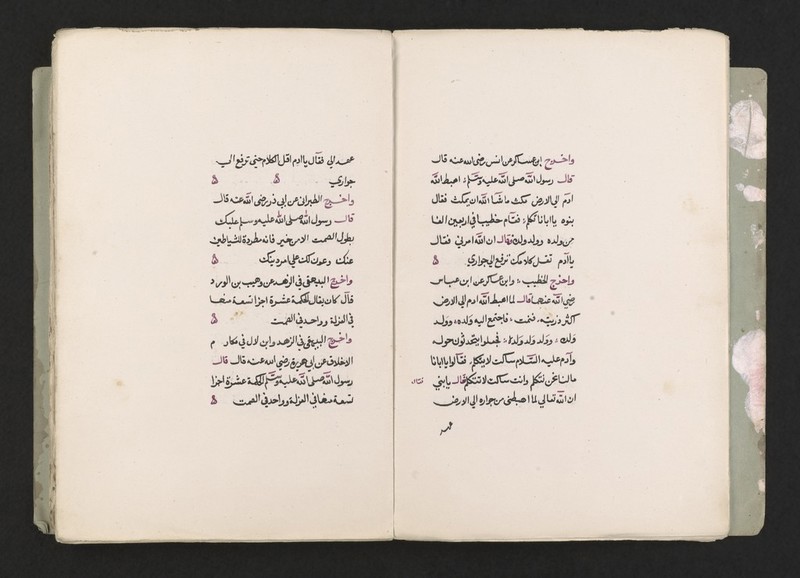 واخرج ابن عساكر عن انس رضى الله عنه قال
قال رسول الله صلى الله عليه وسلم اهبط الله
ادم الي الارض مكث ماشا الله ان يمكث فقال
بنوه ياابانا تكلم فقام خطيبا في اربعين الفا
من ولده وولد ولده فقال ان الله امرني فقال
ياآدم تقلل كلامك ترفع الي جواري ۿ
واخرج الخطيب وابن عساكر عن ابن عباس
رضي الله عنهما قال لما اهبط الله ادم الي الارض
كثر ذريته فنمت فاجتمع اليه ولده وولد
ولده وولد ولد ولده فجعلوا يتحدثون حوله
وآدم عليه السلام ساكت لا يتكلم فقالوا ياابانا
مالنا نحن نتكلم وانت ساكت لا تتكلم قال يابني
فقال
ان الله تعالي لما اهبطني من جواره الي الارض
عهد
عهد الي فقال ياادم اقل الكلام حتى ترجع الي
جواري ۿ ۿ
واخرج الطبراني عن ابي ذر رضى الله عنه قال
قال رسول الله صلى الله عليه وسلم عليك
بطول الصمت الا من خير فانه مطردة للشياطين
عنك وعون لك علي امر دينك ۿ
واخرج البيهقي في الزهد عن وهيب بن الورد
قال كان يقال الحكمة عشرة اجزا تسعة منها
في العزلة وواحد في الصمت ۿ
واخرج البيهقي في الزهد وابن لال في مكارم
الاخلاق عن ابي هريرة رضي الله عنه قال قال
رسول الله صلى الله عليه وسلم الحكمة عشرة اجزا
تسعة منها في العزلة وواحد في الصمت ۿ